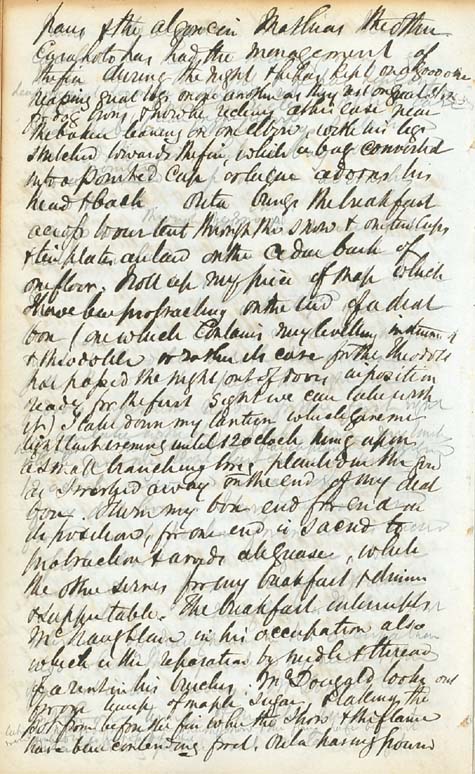 pans & the algonein Mathias the other
has had the management of
the fire during the night & has kept on
on one another as they rest on goat skin
& now he reclines at his ease near
the leaning on one elbow with his legs
stretched towards the fire, while a bag converted
into a pointed cap or toque adorns his
head & back Oreta brings the breakfast
across to our hut through the snow & on tin cups
& tin plates on the cedar bark of
our floor. I roll up my piece of map which
I have been protracting on the lid of a deal
box (one which contains my levelling instrument
& theodolite or rather its case for the Theodolite
has passed the night out of doors in position
ready for the first sight we can take with
it) I take down my lantern which gave me
light last evening until 12 o'clock hung upon
a small branching tree planted in the
as I worked away on the end of my deal
box. I turn my box end for end in
its position, for one end is sacred to
protraction & avoids all grease, while
the other serves for my breakfast & dinner
& supper table. The breakfast interrupts
McNaughtan in his occupation also
which is the reparation by needle & thread
of a rent in his breeches. McDougald looks out
for some lump of maple sugar & taking the
pot from before the fire where the snow & the flame
have been contending for it. Oreta having